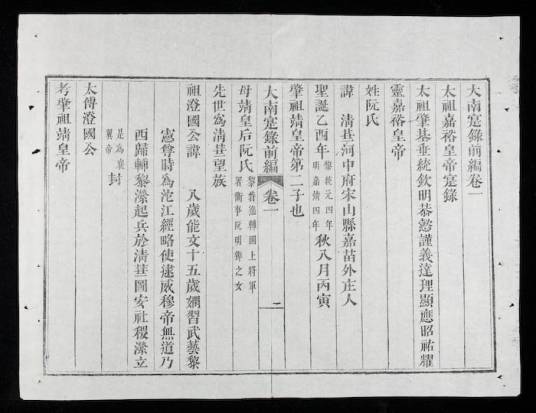 大南寔錄前編卷一
太祖嘉裕皇帝寔錄
太祖肇基垂統欽明恭懿謹義達理顯應昭祐耀
靈嘉裕皇帝
姓阮氏
諱 清葩河中府宋山縣嘉苗外庄人
聖誕乙酉年黎統元四年明嘉靖四年秋八月丙寅
肇祖靖皇帝第二子也
大南寔錄前編 卷一 二
母靖皇后阮氏黎特進輔國上將軍署衛事阮明辯之女
先世為清葩望族
祖澄國公諱 八歲能文十五歲嫺習武藝黎
憲尊時為沱江經略使逮威穆帝無道乃
西歸輔黎瀠起兵於清葩圖安社稷瀠立
是為襄翼帝封
太傅澄國公
考肇祖靖皇帝